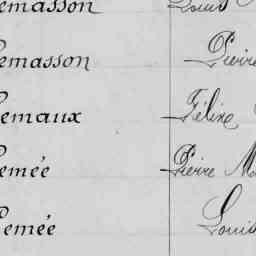 Lemasson Louis
Lemasson Pierre
Lemaux Félix
Lemée Pierre M
Lemée Louis